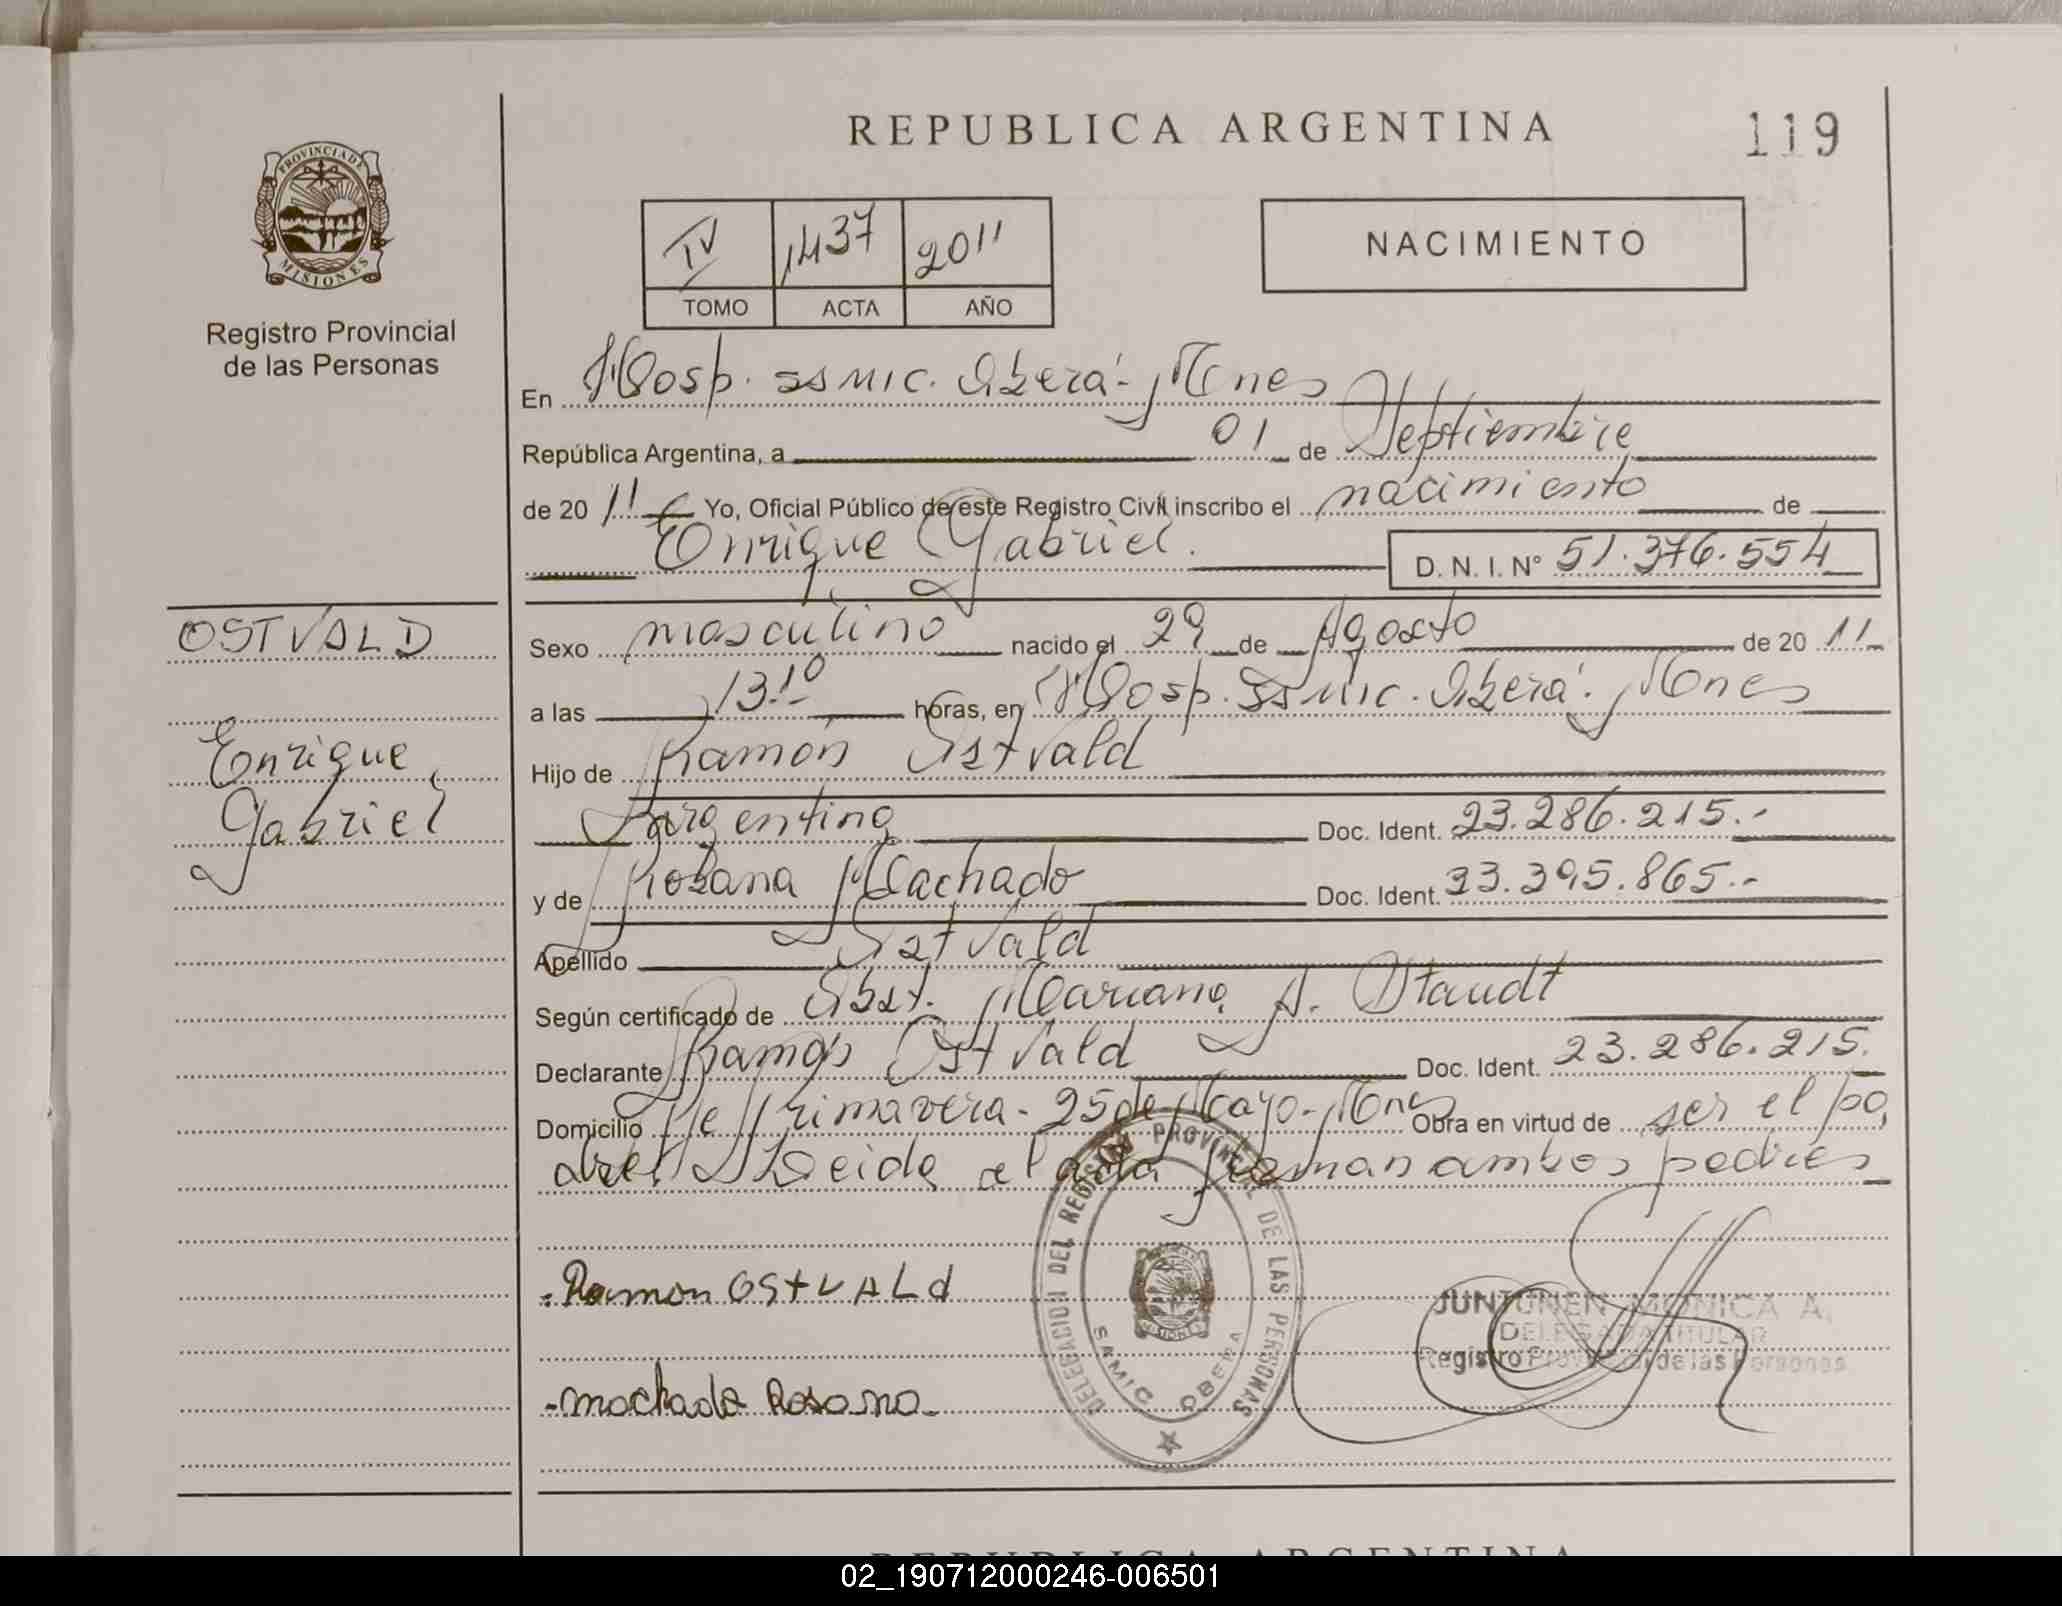 REPUBLICA ARGENTINA
119
PROVINCIA DE
MISIONES
Registro Provincial
de las Personas
IV 1437 2011
TOMO ACTA AÑO
NACIMIENTO
En Hosp. SSMIC. Oberá - Mnes
República Argentina, a 01 de Septiembre
de 2011 Yo, Oficial Público de este Registro Civil inscribo el nacimiento de
Enrique Gabriel. D. N. I. N° 51.376.554
OSTVALD
Enrique
Gabriel
Sexo masculino nacido el 29 de Agosto de 2011
a las 13.10 horas, en Hosp. SSMIC. Oberá. Mones
Hijo de Ramón Ostvald
Argentino Doc. Ident. 23.286.215.-
y de Rosana Machado Doc. Ident. 33.395.865.-
Apellido Ostvald
Según certificado de Obst. Mariana A. Staudt
Declarante Ramón Ostvald Doc. Ident. 23.286.215.
Domicilio Primavera - 25 de Mayo - Mnes Obra en virtud de ser el pa
dre Leida el acta firman ambos padres
Ramon OStVALd
- machado Rosana -
DELEGACION DEL REGISTRO PROVINCIAL DE LAS PERSONAS
SAMIC OBERA
JUNTUNEN MONICA A.
DELEGADA TITULAR
Registro Provincial de las Personas
REPUBLICA ARGENTINA
02_190712000246-006501